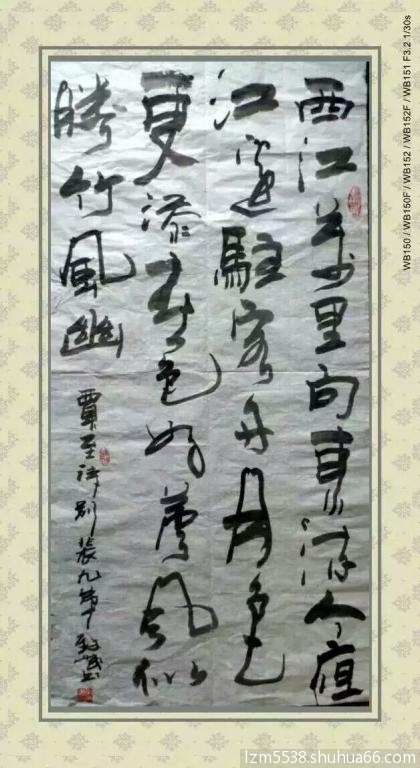 西江万里向東流今夜
江邊駐客舟月色
更添春色好蘆風似
勝竹風幽
賈至詩別裴九弟
WB150 / WB150F / WB152 / WB152F / WB151 F3.2 1/30s
lzm5538.shuhua66.com